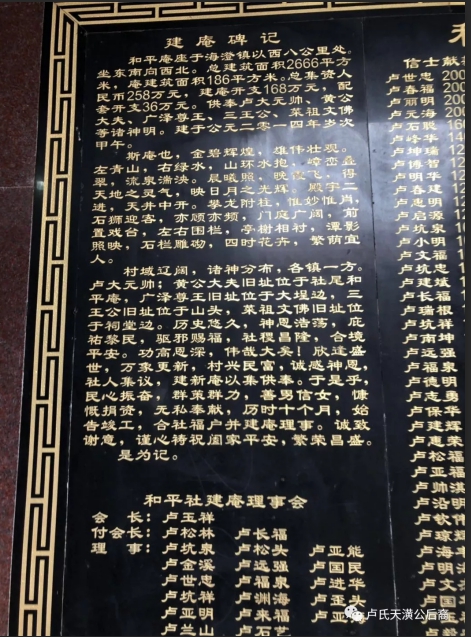 建庵碑记
和平庵座于海澄镇以西八公里处。
坐东南向西北。总建筑面积2666平方
米，庵建筑面积186平方米。总集资人
民币258万元，建庵开支168万元，配
套开支36万元。供奉卢大元帅、黄公
大夫、广泽尊王、三王公、菜祖文佛
等诸神明。建于公元二零一四年岁次
甲午。
斯庵也，金碧辉煌，雄伟壮观。
左青山，右绿水，山环水抱，嶂峦叠
翠，流泉湍泱。晨曦照，晚霞飞，得
天地之灵气，映日月之光辉，殿宇二
进，天井中开。攀龙附柱，惟妙惟肖，
石狮迎客，亦顾亦频，门庭广阔，前
置戏台，左右围栏，亭榭相衬，潭影
照映，石栏雕砌，四时花卉，繁荫宜
人。
村域辽阔，诸神分布，各镇一方。
卢大元帅；黄公大夫旧址位于社尾和
平庵，广泽尊王旧址位于大埕边，三
王公旧址位于山头，菜祖文佛旧址位
于祠堂边。历史悠久，神恩浩荡，庇
祐黎民，驱邪赐福，社稷昌隆，合境
平安。功高恩深，伟哉大矣！欣逢盛
世，万象更新，村兴民富，诚感神恩，
社人集议，建新庵以集供奉。于是乎，
民心振奋，群策群力，善男信女，慷
慨捐资，无私奉献，历时十个月，始
告竣工，合社福户并建庵理事。诚致
谢意，谨心祷祝阖家平安，繁荣昌盛。
是为记。
和平社建庵理事会
会 长：卢玉祥
付会长：卢松林 卢长福
理 事：卢坑泉 卢松头 卢亚能
卢金溪 卢远强 卢国民
卢世忠 卢福泉 卢进华
卢坑祥 卢渊海 卢歪头
卢亚明 卢来福 卢国
卢兰山 卢石
信士献
卢世忠 200
卢春福
卢丽明 20
卢元海
卢石聪 16
卢峰华
卢坤瑞
卢博智
卢明华
卢春建
卢惠明
卢启源
卢坑泉
卢小明
卢文福
卢坑忠
卢建斌
卢长福
卢瑞根
卢坑祥
卢南坤
卢远强
卢福泉
卢德明
卢志勇
卢保华
卢建辉
卢惠荣
卢松福
卢亚福
卢帅淇
卢沿明
卢钦伟
卢琼
卢海
卢明
卢文
卢国
卢进
卢氏天潢公后裔